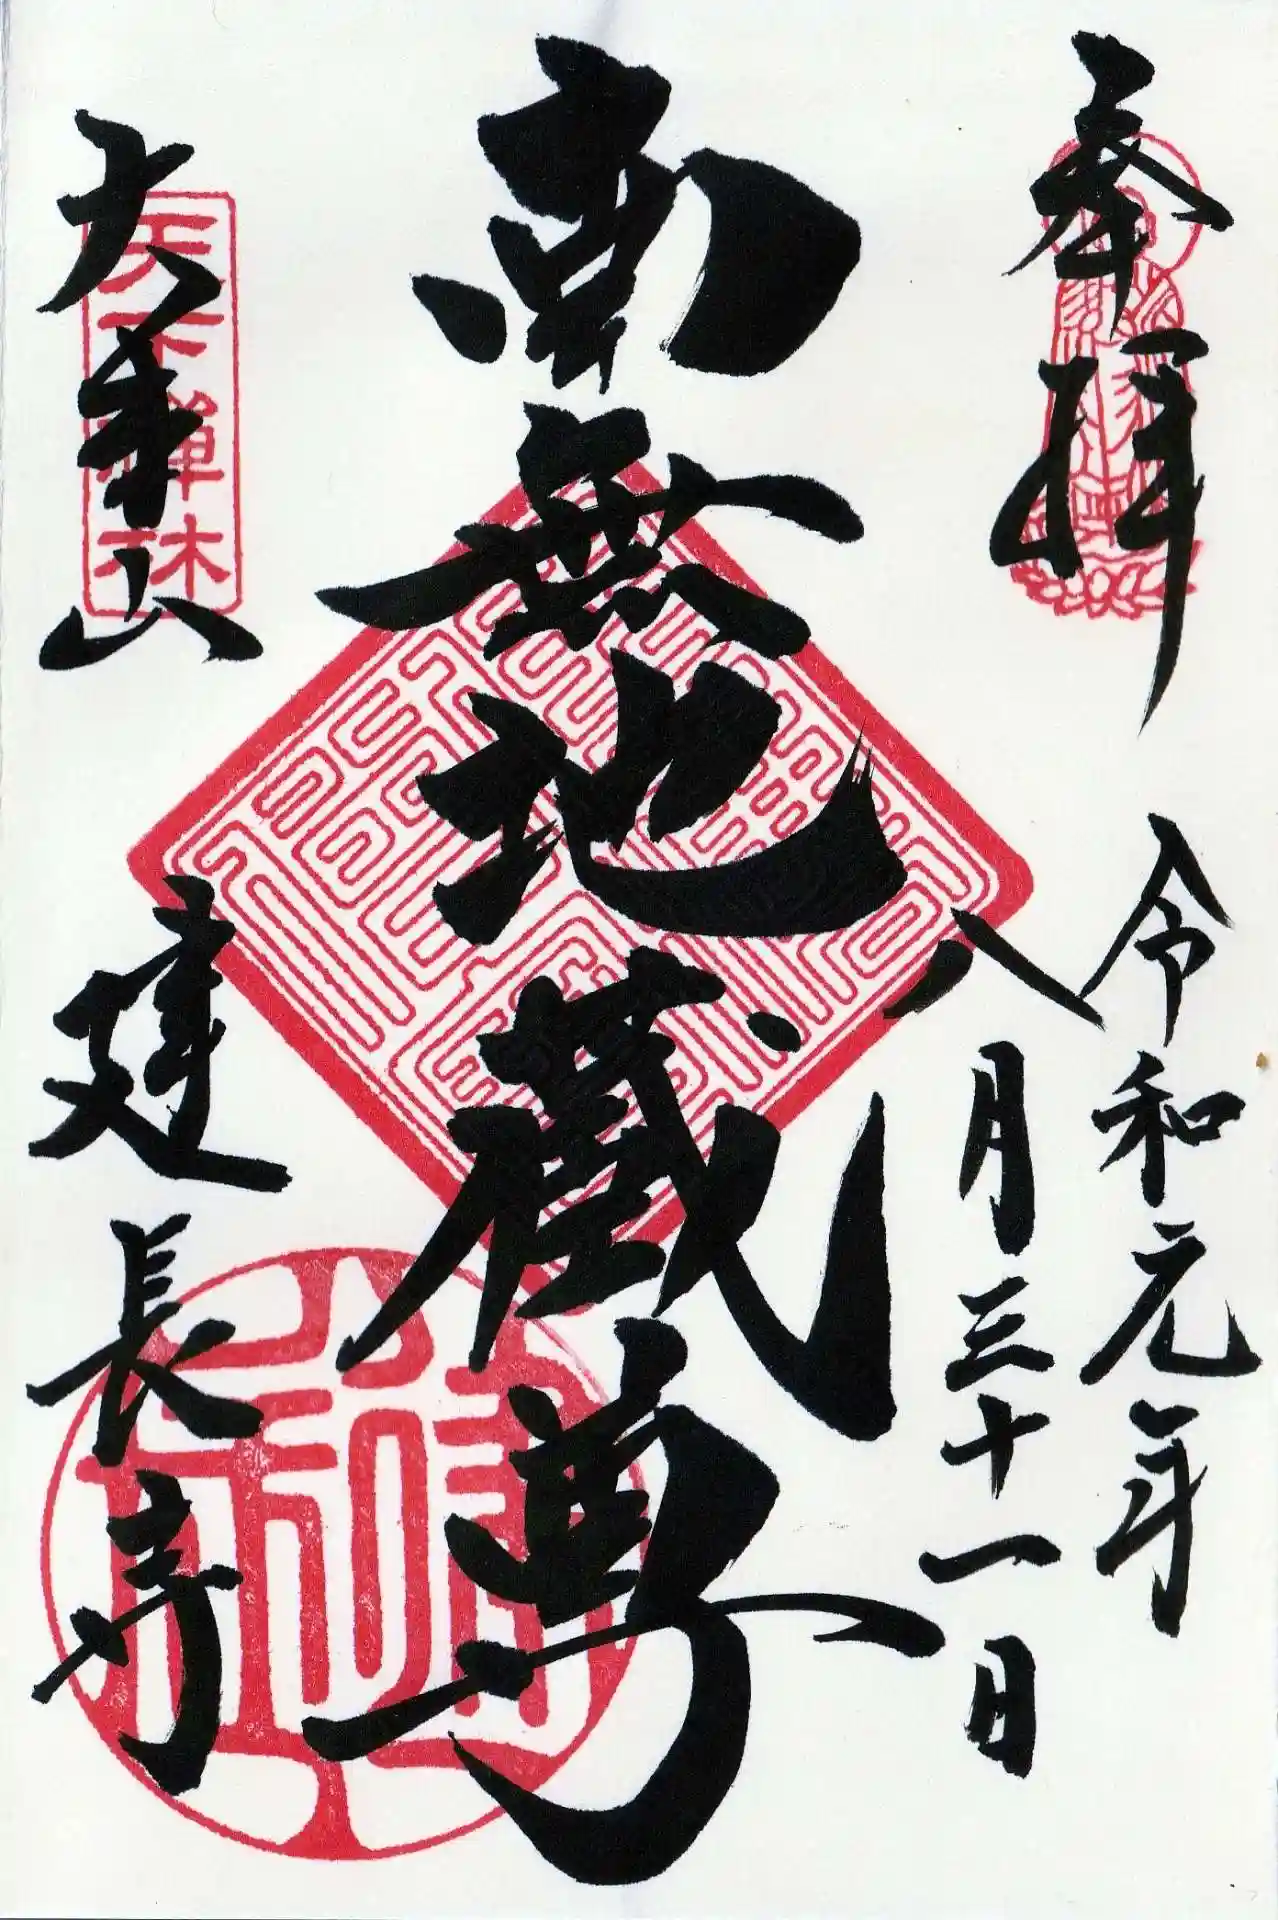 奉拝
令和元年
八月三十一日
南無地蔵尊
天下禅林
大本山
建長寺